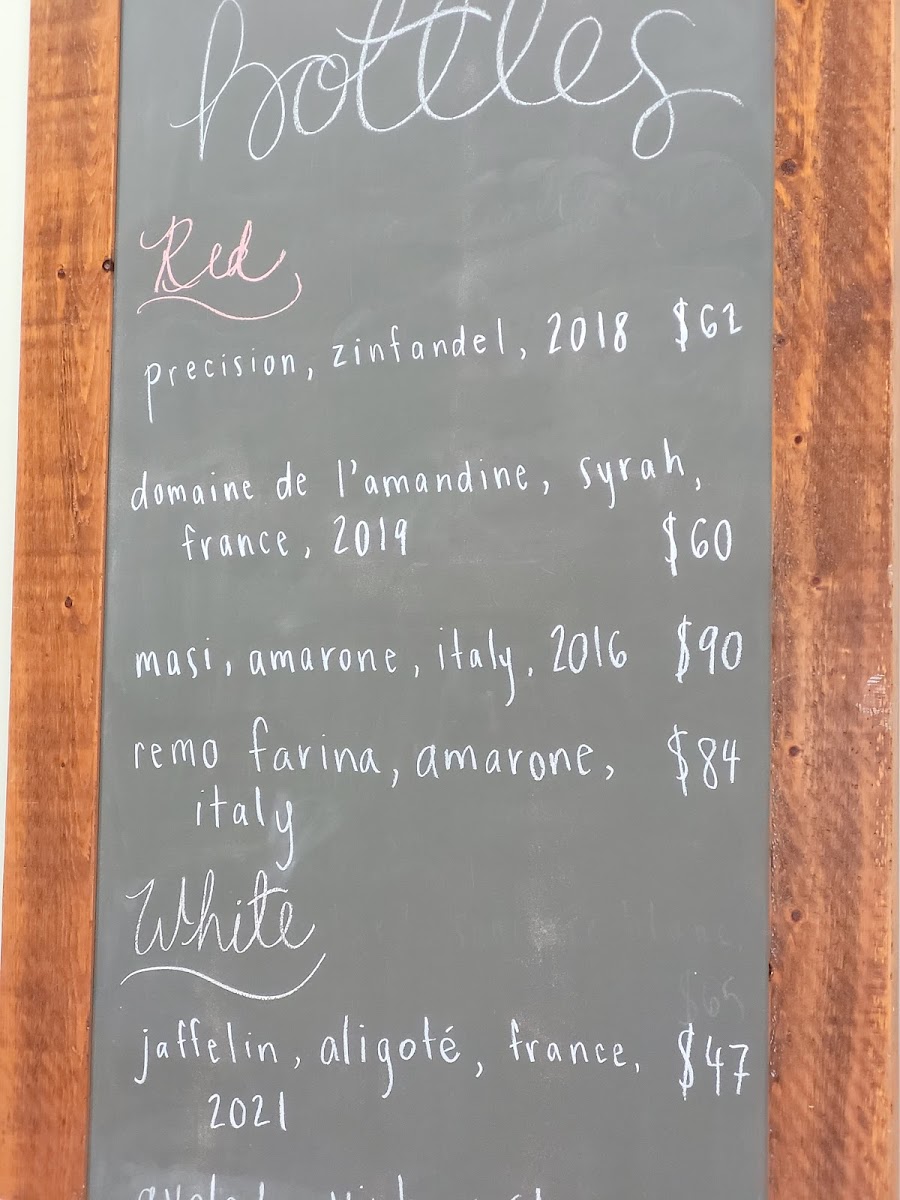 bottles
Red
precision, zinfandel, 2018 $62
domaine de l'amandine, syrah,
france, 2019 $60
masi, amarone, italy, 2016 $90
remo farina, amarone, $84
italy
White
$65
jaffelin, aligoté, france, $47
2021